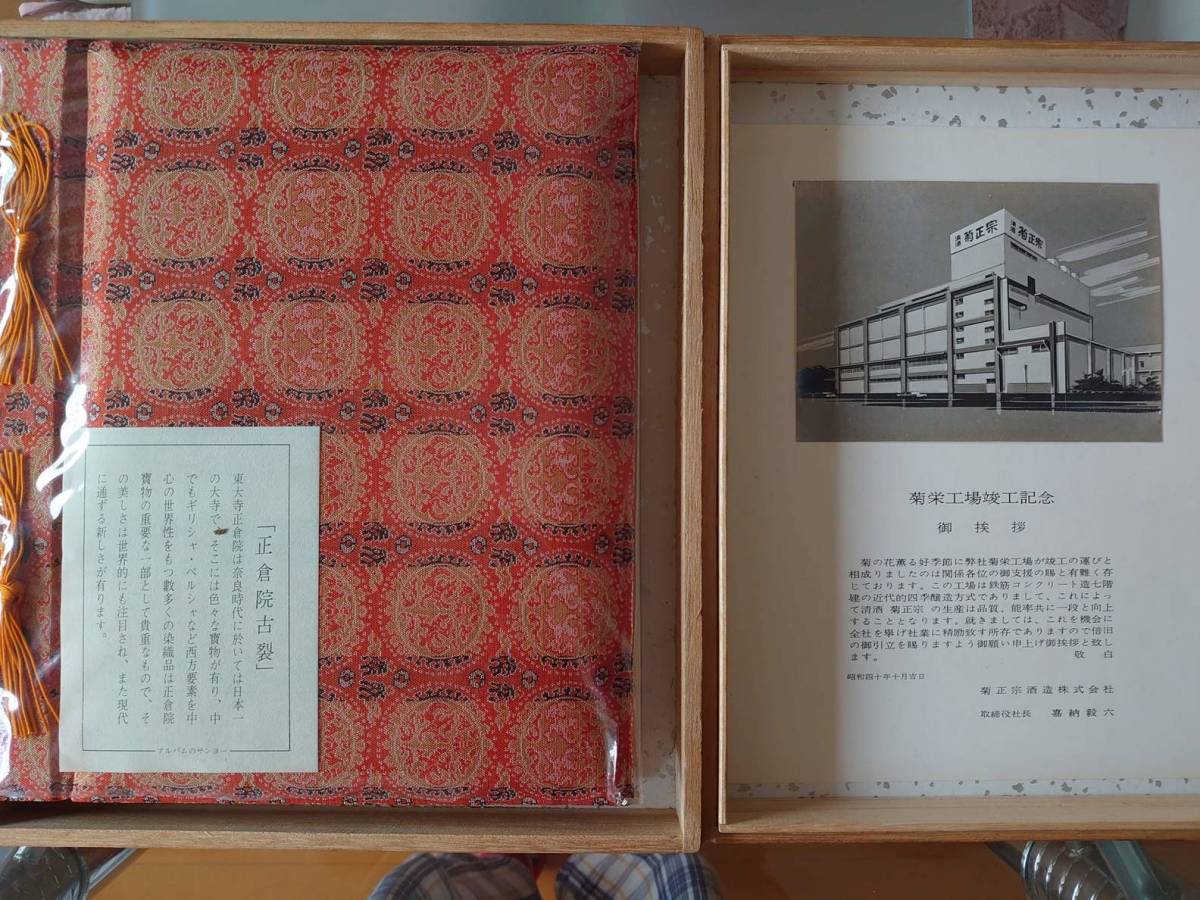 「正倉院古裂」
東大寺正倉院は奈良時代に於いては日本一
の大寺で、そこには色々な寶物が有り、中
でもギリシャ・ペルシャなど西方要素を中
心の世界性をもつ數多くの染織品は正倉院
寶物の重要な一部として貴重なもので、そ
の美しさは世界的にも注目され、また現代
に通ずる新しさが有ります。
アルバムのサンヨー
清酒 菊正宗
清酒 菊正宗
菊栄工場竣工記念
御挨拶
菊の花薫る好季節に弊社菊栄工場が竣工の運びと
相成りましたのは関係各位の御支援の賜と有難く存
じております。この工場は鉄筋コンクリート造七階
建の近代的四季醸造方式でありまして、これによ
って清酒 菊正宗 の生産は品質、能率共に一段と向上
することとなります。就きましては、これを機会に
全社を挙げ社業に精励致す所存でありますので倍旧
の御引立を賜りますよう御願い申上げ御挨拶と致し
ます。 敬白
昭和四十年十月吉日
菊正宗酒造株式会社
取締役社長 嘉納毅六